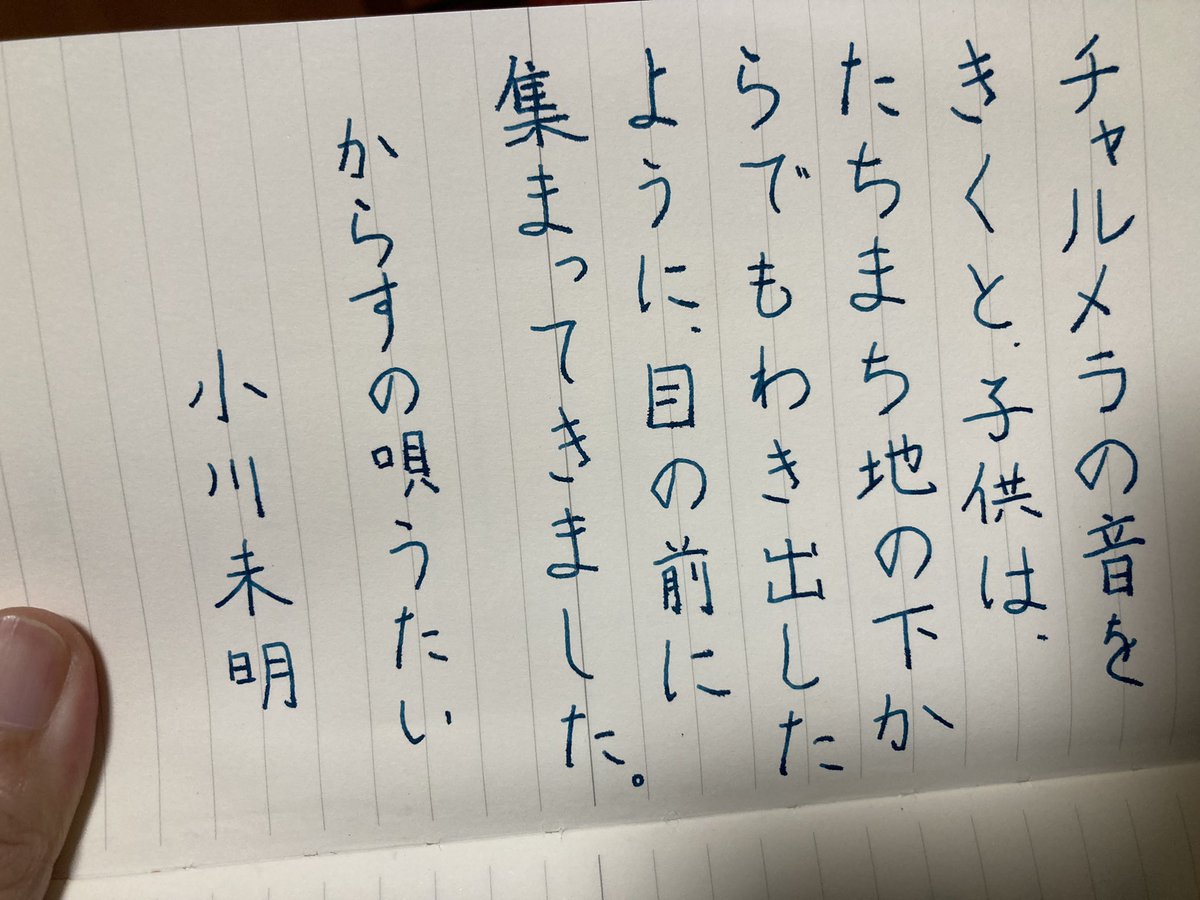 チャルメラの音を
きくと、子供は、
たちまち地の下か
らでもわき出した
ように、目の前に
集まってきました。
からすの唄うたい
小川未明